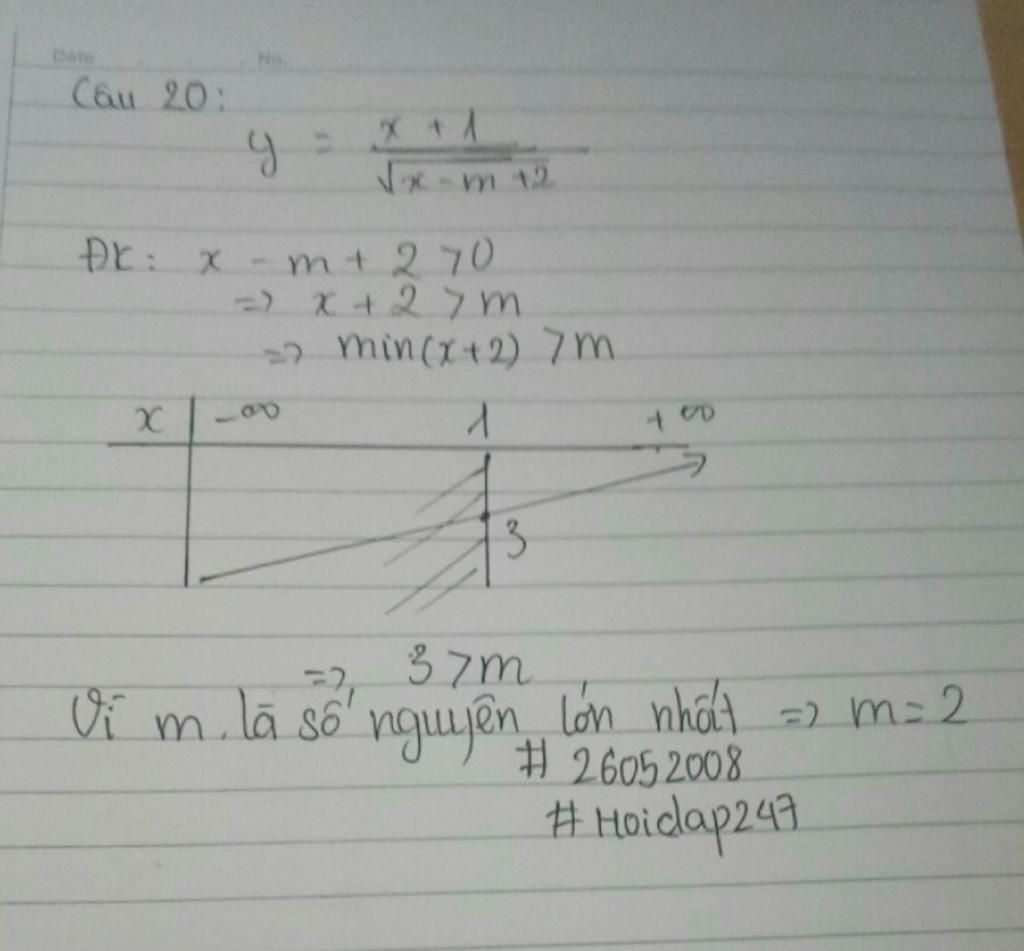 Date No.
Câu 20:
y = x + 1 / √x - m + 2
ĐK: x - m + 2 > 0
=> x + 2 > m
=> min(x+2) > m
x -∞ 1 +∞
3
=> 3 > m
Vì m là số nguyên lớn nhất => m = 2
# 26052008
# Hoidap247